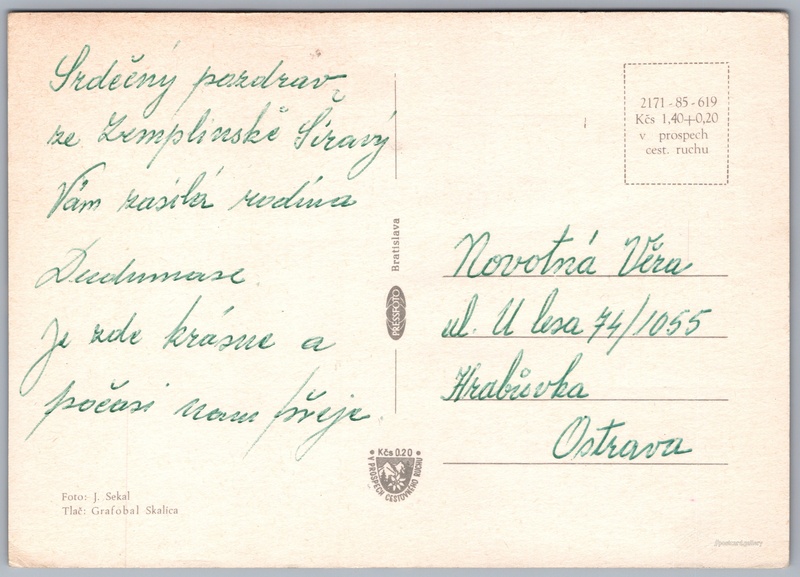 Srdečný pozdrav
ze Zemplínské Šíravy
Vám zasílá rodina
Dudumase.
Je zde krásne a
počasi nam přeje.
Foto: J. Sekal
Tlač: Grafobal Skalica
Bratislava
PRESSFOTO
Kčs 0.20
V PROSPECH CESTOVNÉHO RUCHU
2171-85-619
Kčs 1,40+0,20
v prospech
cest. ruchu
Novotná Věra
ul. U lesa 74/1055
Hrabůvka
Ostrava
postcard.gallery